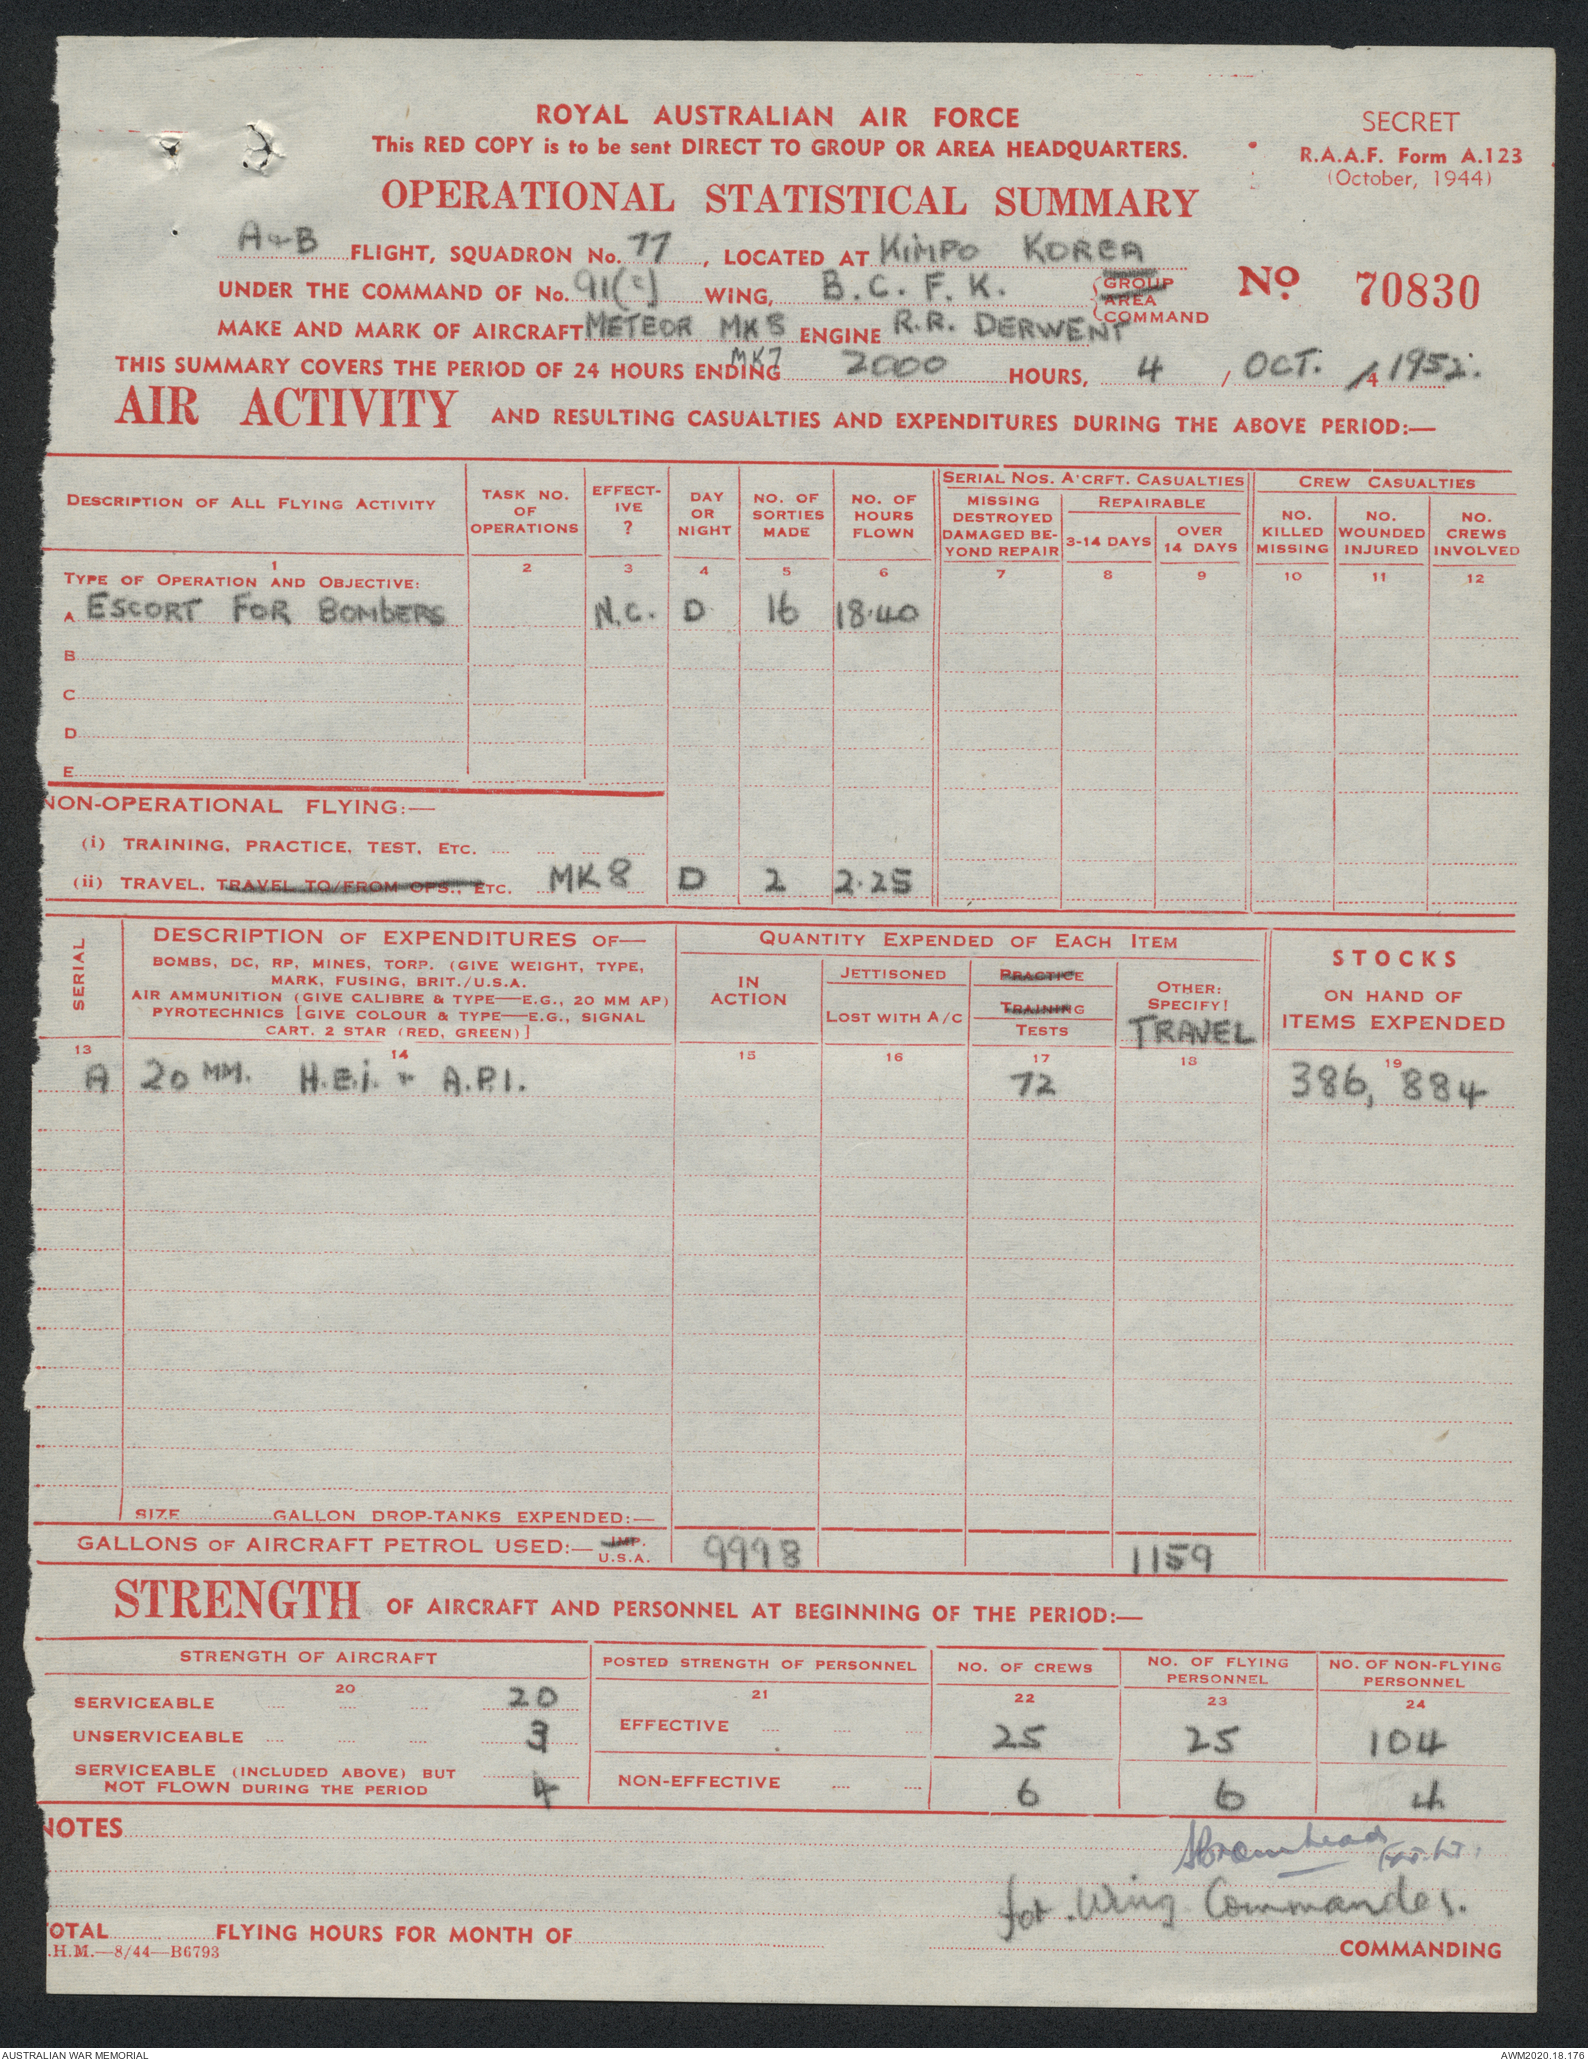 ROYAL AUSTRALIAN AIR FORCE
This RED COPY is to be sent DIRECT TO GROUP OR AREA HEADQUARTERS.
SECRET
R.A.A.F. Form A.123
(October, 1944)
OPERATIONAL STATISTICAL SUMMARY
A+B FLIGHT, SQUADRON No. 77, LOCATED AT KIMPO KOREA
UNDER THE COMMAND OF No. 91(C) WING, B.C.F.K. GROUP AREA COMMAND
No. 70830
MAKE AND MARK OF AIRCRAFT METEOR MK 8 ENGINE R.R. DERWENT
MK7
THIS SUMMARY COVERS THE PERIOD OF 24 HOURS ENDING 2000 HOURS, 4 / OCT. /4 1952.
AIR ACTIVITY AND RESULTING CASUALTIES AND EXPENDITURES DURING THE ABOVE PERIOD:—
DESCRIPTION OF ALL FLYING ACTIVITY
TASK NO. OF OPERATIONS
EFFECT-IVE ?
DAY OR NIGHT
NO. OF SORTIES MADE
NO. OF HOURS FLOWN
SERIAL NOS. A'CRFT. CASUALTIES
MISSING DESTROYED DAMAGED BE-YOND REPAIR
REPAIRABLE
3-14 DAYS
OVER 14 DAYS
CREW CASUALTIES
NO. KILLED MISSING
NO. WOUNDED INJURED
NO. CREWS INVOLVED
1 2 3 4 5 6 7 8 9 10 11 12
TYPE OF OPERATION AND OBJECTIVE:
A ESCORT FOR BOMBERS N.C. D 16 18.40
B
C
D
E
NON-OPERATIONAL FLYING:—
(i) TRAINING, PRACTICE, TEST, ETC.
(ii) TRAVEL, TRAVEL TO/FROM OPS., ETC. MK 8 D 2 2.25
SERIAL
DESCRIPTION OF EXPENDITURES OF—
BOMBS, DC, RP, MINES, TORP. (GIVE WEIGHT, TYPE,
MARK, FUSING, BRIT./U.S.A.
AIR AMMUNITION (GIVE CALIBRE & TYPE—E.G., 20 MM AP)
PYROTECHNICS [GIVE COLOUR & TYPE—E.G., SIGNAL
CART. 2 STAR (RED, GREEN)]
QUANTITY EXPENDED OF EACH ITEM
IN ACTION
JETTISONED
LOST WITH A/C
PRACTICE
TRAINING
TESTS
OTHER: SPECIFY!
TRAVEL
STOCKS
ON HAND OF
ITEMS EXPENDED
13 14 15 16 17 18 19
A 20 MM. H.E.I. + A.P.I. 72 386,884
SIZE GALLON DROP-TANKS EXPENDED:—
GALLONS OF AIRCRAFT PETROL USED:— IMP. U.S.A. 9998 1159
STRENGTH OF AIRCRAFT AND PERSONNEL AT BEGINNING OF THE PERIOD:—
STRENGTH OF AIRCRAFT
POSTED STRENGTH OF PERSONNEL
NO. OF CREWS
NO. OF FLYING PERSONNEL
NO. OF NON-FLYING PERSONNEL
20 21 22 23 24
SERVICEABLE 20
UNSERVICEABLE 3
SERVICEABLE (INCLUDED ABOVE) BUT NOT FLOWN DURING THE PERIOD 4
EFFECTIVE 25 25 104
NON-EFFECTIVE 6 6 4
NOTES
for Wing Commander.
OTAL FLYING HOURS FOR MONTH OF
.H.M.—8/44—B6793
COMMANDING
AUSTRALIAN WAR MEMORIAL
AWM2020.18.176